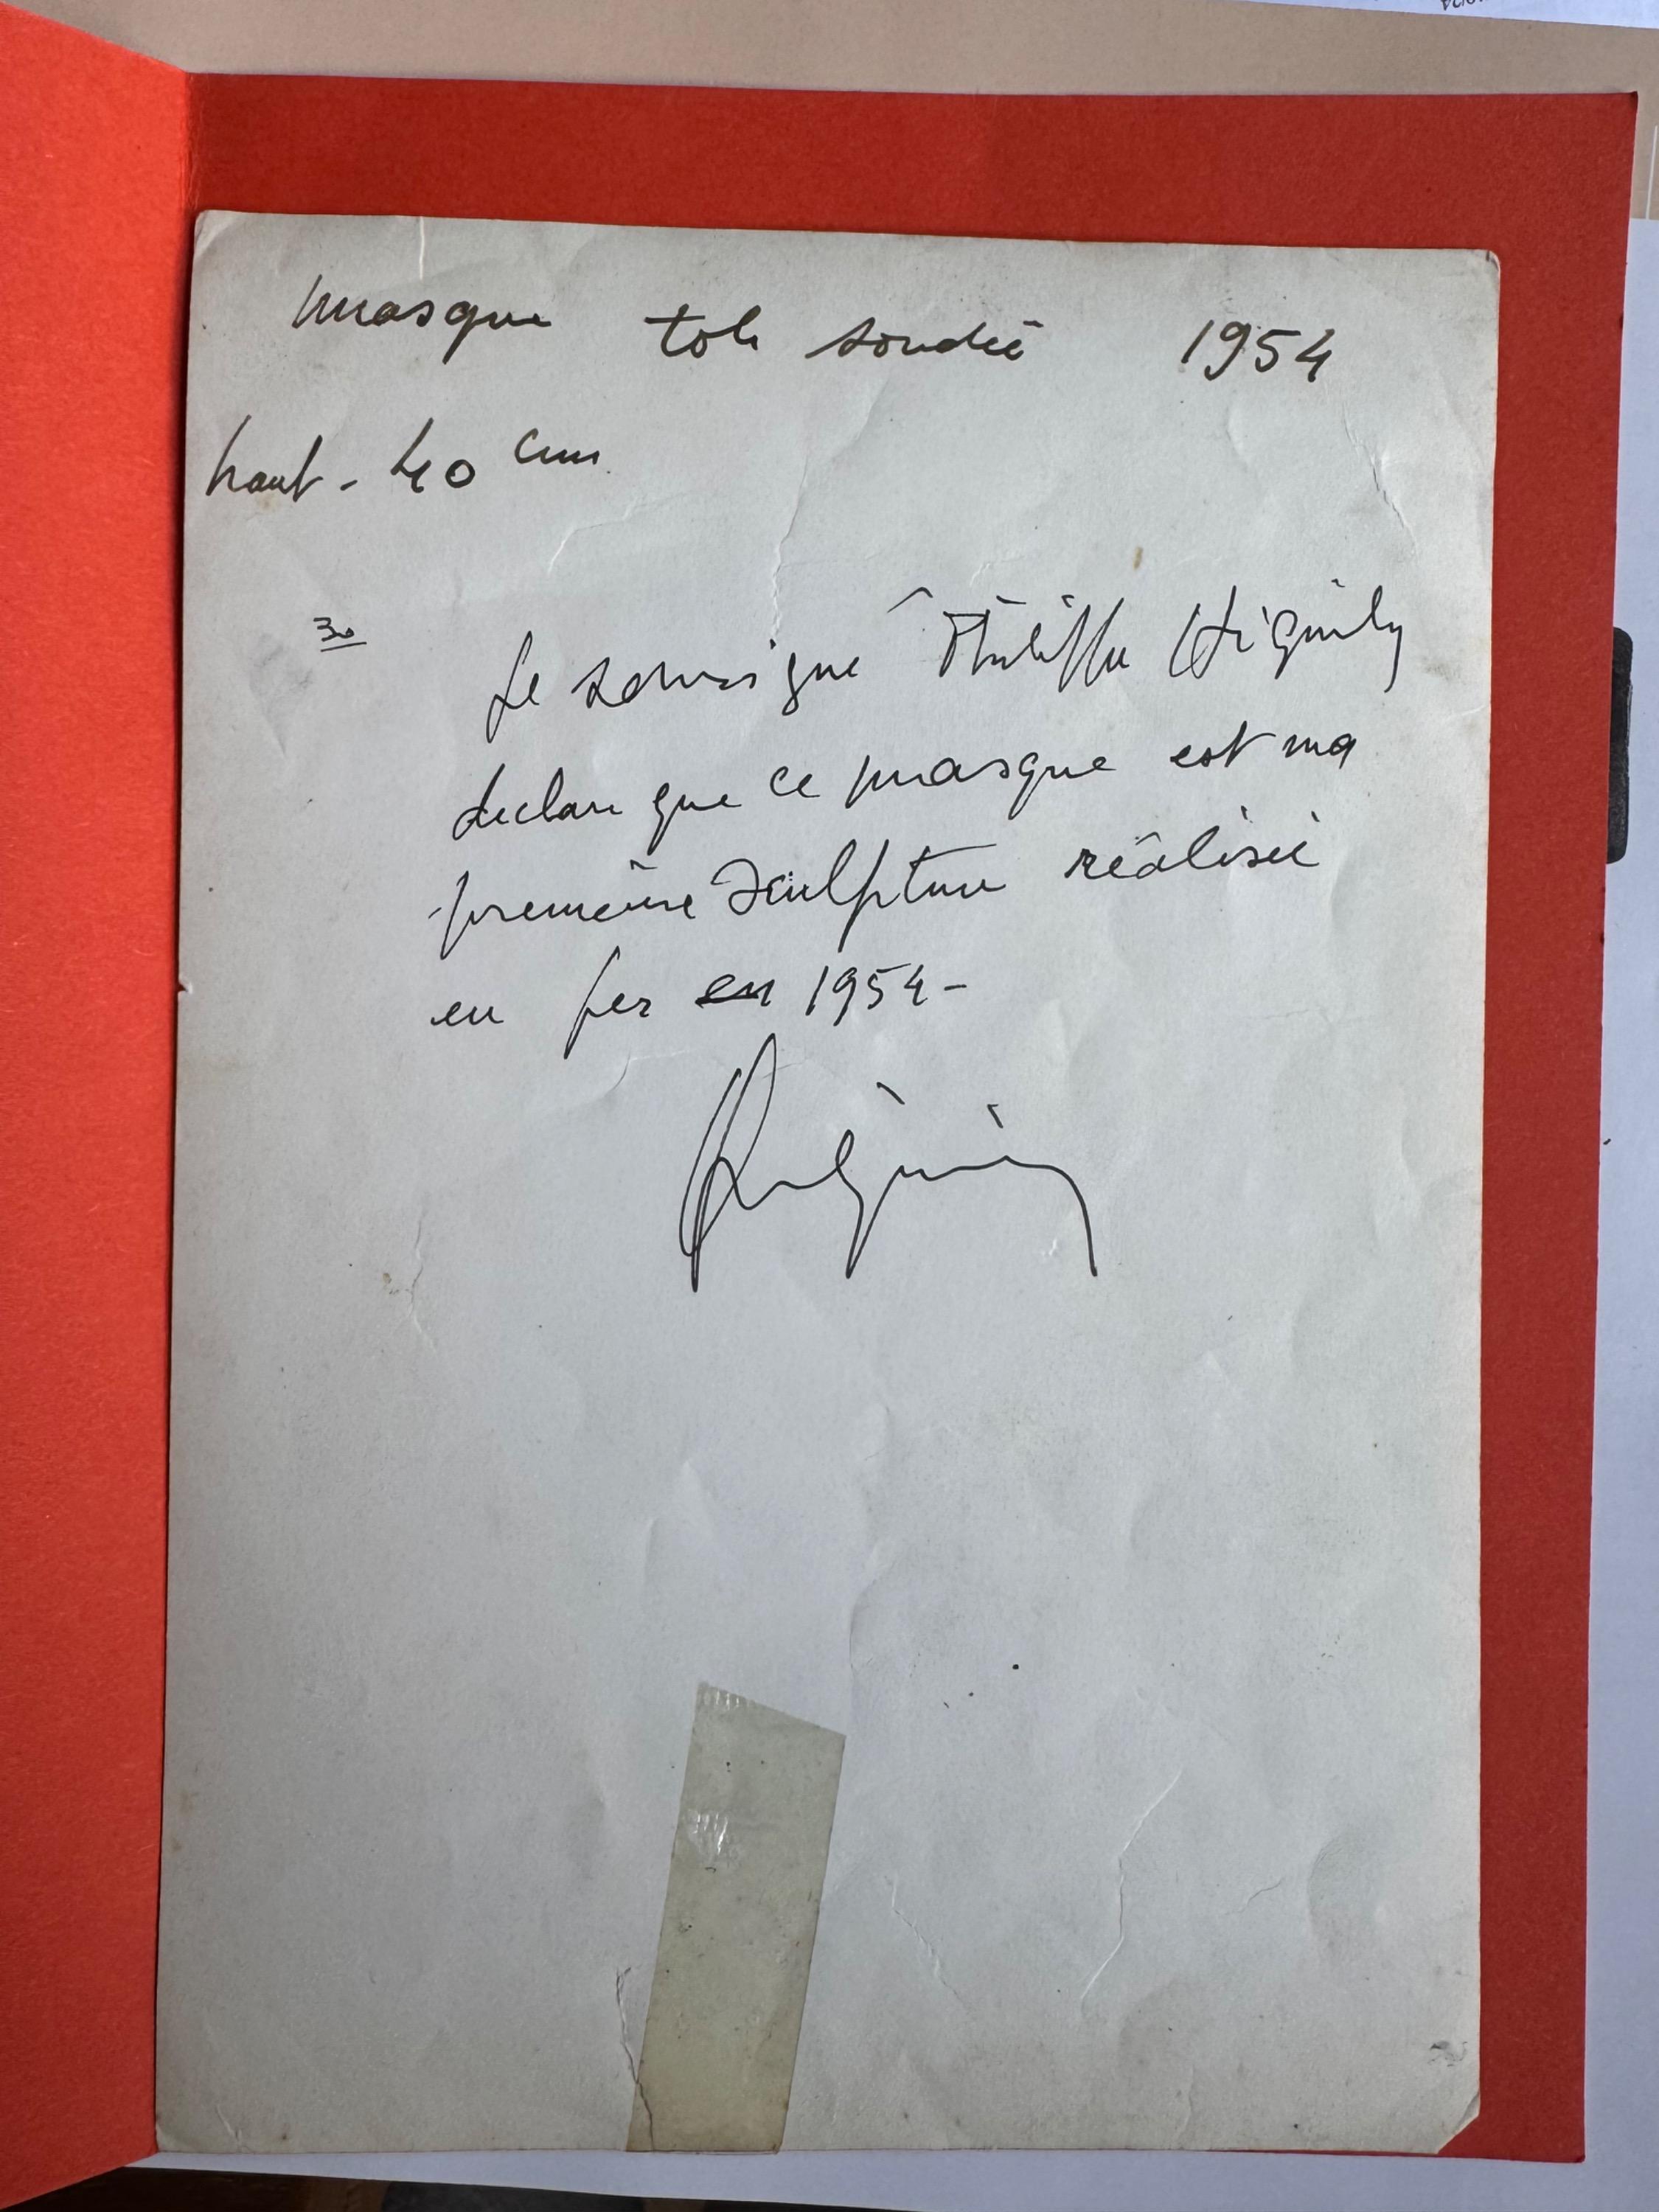 masque tole soudée 1954
haut - 40 cm
30
Je soussigné Philippe Hiquily
declare que ce masque est ma
première sculpture réalisée
en fer en 1954 -
Hiquily